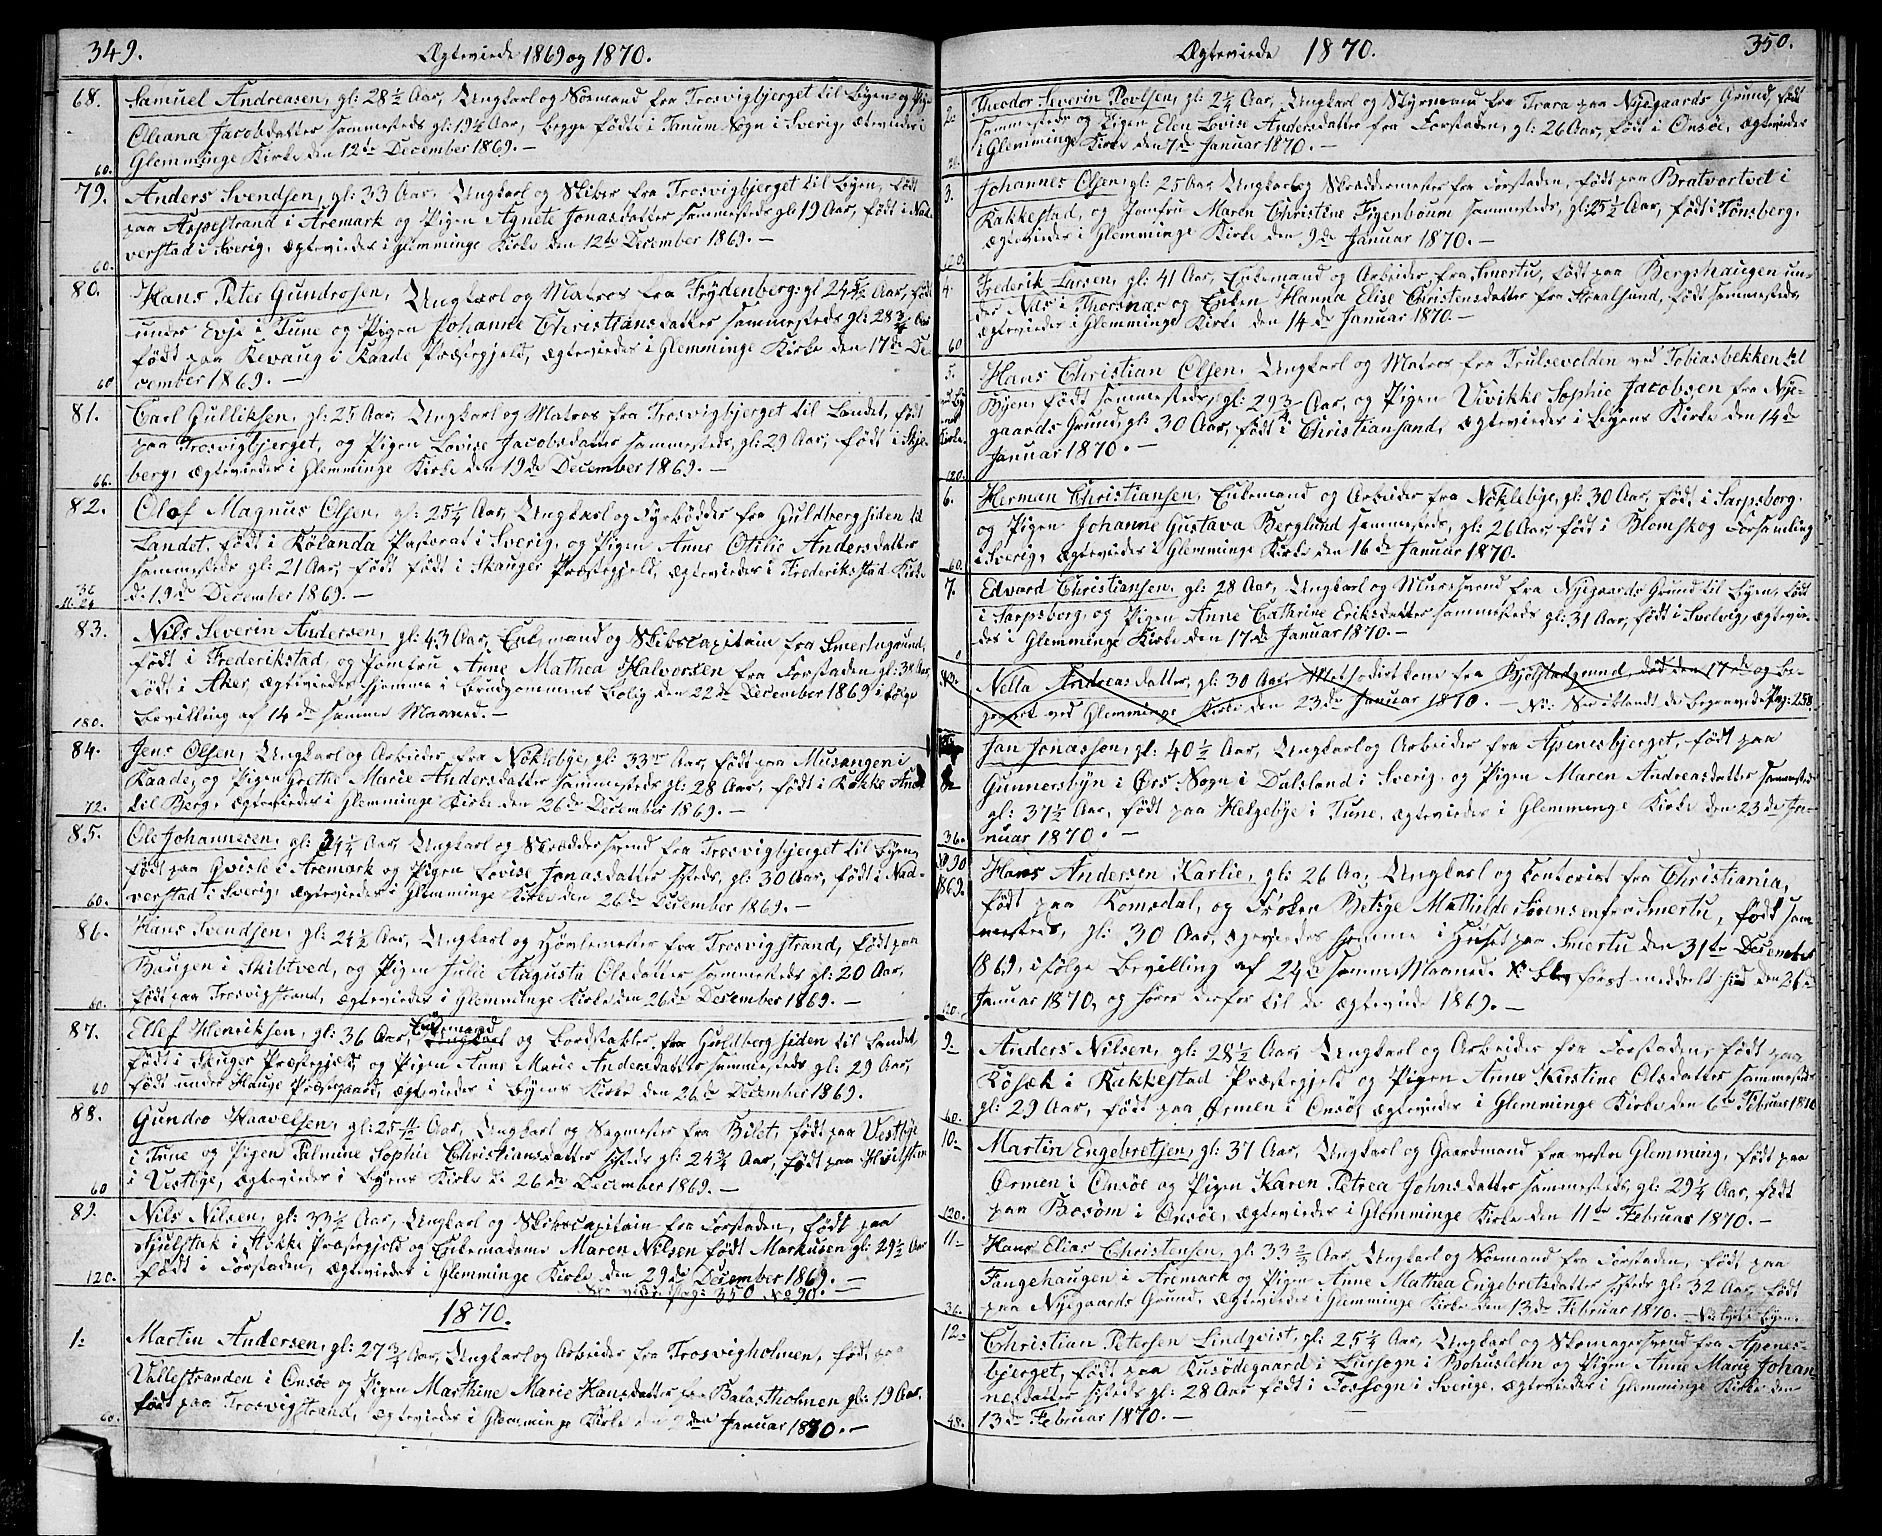 349.
Ægteviede 1869 og 1870.
68. Samuel Andreasen, gl: 28½ Aar, Ungkarl og Sømand fra Trosvigbjerget til Byen og Pigen
Oleana Jacobsdatter sammesteds gl: 19¼ Aar, begge födte i Tanum Sogn i Sverig, ægteviede i
Glemminge Kirke den 12te December 1869. —
60.
79. Anders Svendsen, gl: 33 Aar, Ungkarl og Skiber fra Trosvigbjerget til Byen, födt
paa Aspestrand i Aremark og Pigen Agnete Jonasdatter sammesteds gl: 19 Aar, födt i Nad-
verstad i Sverig, ægteviede i Glemminge Kirke den 12te December 1869. —
60.
80. Hans Peter Gundrosen, Ungkarl og Matros fra Frydenberg gl 24 Aar, födt
under Evje i Tune og Pigen Johanne Christiansdatter sammesteds gl: 28¾ Aar
födt paa Kevaug i Raade Præstegjeld, ægteviede i Glemminge Kirke den 17de De-
cember 1869. —
60
81. Carl Gulliksen, gl: 25 Aar, Ungkarl og Matros fra Trosvigbjerget til Landet, födt
paa Trosvigbjerget, og Pigen Lovise Jacobsdatter sammesteds, gl: 29 Aar, födt i Skje-
berg, ægteviede i Glemminge Kirke den 19de December 1869. —
66.
82. Olaf Magnus Olsen, gl: 25¼ Aar, Ungkarl og Fyrbödder fra Guldbergsiden til
Landet, födt i Kölanda Pastorat i Sverig, og Pigen Anne Otilie Andersdatter
sammesteds gl: 21 Aar, födt födt i Skauger Præstegjeld, ægteviede i Frederiksstad Kirke
d: 19de December 1869. —
83. Nils Severin Andersen, gl: 43 Aar, Enkemand og Skibscapitain fra Smertugrund,
födt i Frederikstad, og Jomfru Anne Mathea Halvorsen fra Forstaden gl: 34 Aar,
födt i Aker, ægteviede hjemme i Brudgommens Bolig den 22de December 1869 ifölge
Bevilling af 14de samme Maaned. —
180.
84. Jens Olsen, Ungkarl og Arbeider fra Nöklebye, gl: 33 Aar, födt paa Musangen i
Raade, og Pigen Grethe Marie Andersdatter sammesteds gl: 28 Aar, födt i Rokke Annex
til Berg, ægteviede i Glemminge Kirke den 26de December 1869. —
72.
85. Ole Johannesen, gl: 34¼ Aar, Ungkarl og Skræddersvend fra Trosvigbjerget til Byen,
födt paa Gvisle i Aremark og Pigen Lovise Jonasdatter sstds, gl: 30 Aar, födt i Nad-
verstad i Sverig, ægteviede i Glemminge Kirke den 26de December 1869. —
60.
86. Hans Svendsen, gl: 24½ Aar, Ungkarl og Hövlemester fra Trosvigstrand, födt paa
Haugen i Skibtved, og Pigen Julie Augusta Olsdatter sammesteds gl: 20 Aar,
födt paa Trosvigstrand, ægteviede i Glemminge Kirke den 26de December 1869. —
60.
87. Ellef Henriksen, gl: 36 Aar, Enkemand og Bordstabler fra Guldbergsiden til Landet,
födt i Skuger Præstegjeld og Pigen Anne Marie Andersdatter sammesteds gl: 29 Aar,
födt under Hauge Præstgaard, ægteviede i Byens Kirke den 26de December 1869.
60
88. Gundro Haavelsen, gl: 25 Aar, Ungkarl og Sagmester fra Bilet, födt paa Vestbye
i Tune og Pigen Palmine Sophie Christiansdatter sstds gl: 24¾ Aar, födt paa Hvidsten
i Vestbye, ægteviede i Byens Kirke d: 26de December 1869. —
60
89. Nils Nilsen, gl: 33½ Aar, Ungkarl og Skibscapitain fra Forstaden, födt paa
Kjulstak i Præstegjeld og Enkemadame Maren Nilsen födt Markusen gl: 29½ Aar
födt i Forstaden, ægteviede i Glemminge Kirke den 29de December 1869. —
120.
Pag: 350 No 90.
1870.
1. Martin Andersen, gl: 27¾ Aar, Ungkarl og Arbeider fra Trosvigholmen, födt paa
Vallestranden i Onsöe og Pigen Marthine Marie Hansdatter fra Balastholmen gl: 19 Aar,
födt paa Trosvigstrand, ægteviede i Glemminge Kirke den 2den Januar 1870. —
60.
Ægteviede 1870.
350.
2. Theodor Severin Povlsen, gl: 24 Aar, Ungkarl og Styrmand fra Trara paa Nyegaards Grund, födt
sammesteds og Pigen Elen Lovise Andersdatter fra Forstaden, gl: 26 Aar, födt i Onsöe, ægteviede
i Glemminge Kirke den 7de Januar 1870. —
3. Johannes Olsen, gl: 25 Aar, Ungkarl og Skræddermester fra Forstaden, födt paa Bratvortvet i
Rakkestad, og Jomfru Maren Christine Figenboum sammesteds, gl: 25½ Aar, födt i Tönsberg,
ægteviede i Glemminge Kirke den 9de Januar 1870. —
120.
4. Frederik Larsen, gl: 41 Aar, Enkemand og Arbeider fra Smertu, födt paa Bergshaugen un-
der Næs i Thorsnæs og Enken Hanna Elise Christensdatter fra Stralsund, födt sammesteds,
ægteviede i Glemminge Kirke den 14de Januar 1870. —
60
5. Hans Christian Olsen, Ungkarl og Matros fra Trulsevolden ved Tobiasbekken til
Byen, födt sammesteds, gl: 29¾ Aar, og Pigen Vivikke Sophie Jacobsen fra Nye-
gaards Grund, gl: 30 Aar, födt i Christiansand, ægteviede i Byens Kirke den 14de
Januar 1870. —
120.
6. Herman Christiansen, Enkemand og Arbeider fra Nöklebye, gl: 30 Aar, födt i Sarpsborg,
og Pigen Johanne Gustava Berglund sammesteds, gl: 26 Aar, födt i Blomskog Forsamling
i Sverig, ægteviede i Glemminge Kirke den 16de Januar 1870.
60.
7. Edvard Christiansen, gl: 28 Aar, Ungkarl og Muursvend fra Nyegaards Grund til Byen, födt
i Sarpsborg, og Pigen Anne Cathrine Eriksdatter sammesteds gl: 31 Aar, födt i Sulvig, ægtevie-
des i Glemminge Kirke den 17de Januar 1870. —
Nella Andreasdatter, gl: 30 Aar, Methodistkone fra Kjölstadgrund, död den 17de og be-
gravet ved Glemminge Kirke den 23de Januar 1870. — NB: See iblandt de begravede Pag: 258.
8. Jan Jonassen, gl: 40½ Aar, Ungkarl og Arbeider fra Apenesbjerget, födt paa
Gunnersbyn i Örs Sogn i Dalsland i Sverig, og Pigen Maren Andreasdatter sammesteds
gl: 37½ Aar, födt paa Helgebye i Tune, ægteviede i Glemminge Kirke den 23de Ja-
nuar 1870. —
36.
No 90
1869. Hans Andersen Karlie, gl: 26 Aar, Ungkarl og Contorist fra Christiania,
födt paa Romsdal, og Fröken Betzye Mathilde Sörensen fra Smertu, födt sam-
mesteds, gl: 30 Aar, ægteviedes hjemme i Huset paa Smertu den 31te December
1869, ifölge Bevilling af 24de samme Maaned. först meddelt hid den 26de
Januar 1870, og hörer derfor til de ægteviede 1869. —
9. Anders Nilsen, gl: 28½ Aar, Ungkarl og Arbeider fra Forstaden, födt paa
Kösæk i Rakkestad Præstegjeld og Pigen Anne Kirstine Olsdatter sammesteds
gl: 29 Aar, födt paa Örmen i Onsöe, ægteviede i Glemminge Kirke den 6te Februar 1870
60.
10. Martin Engebretsen, gl: 37 Aar, Ungkarl og Gaardmand fra vestre Glemming, födt paa
Örmen i Onsöe og Pigen Karen Petrea Johnsdatter sammesteds, gl: 29¼ Aar, födt
paa Bosöm i Onsöe, ægteviede i Glemminge Kirke den 11te Februar 1870. —
120.
11. Hans Elias Christensen, gl: 33⅔ Aar, Ungkarl og Sömand fra Forstaden, födt paa
Fangehaugen i Aremark og Pigen Anne Mathea Engebretsdatter sstds gl: 32 Aar, födt
paa Nyegaards Grund, ægteviede i Glemminge Kirke den 13de Februar 1870. —
36.
12. Christian Petersen Lindqvist, gl: 25¼ Aar, Ungkarl og Skomagersvend fra Apenes-
bjerget, födt paa Kusödegaard i Lursogn i Bohuslehn og Pigen Anne Marie Johan-
nesdatter sstds gl: 28 Aar födt i Fossogn i Sverige, ægteviede i Glemminge Kirke den
13de Februar 1870. —
48.